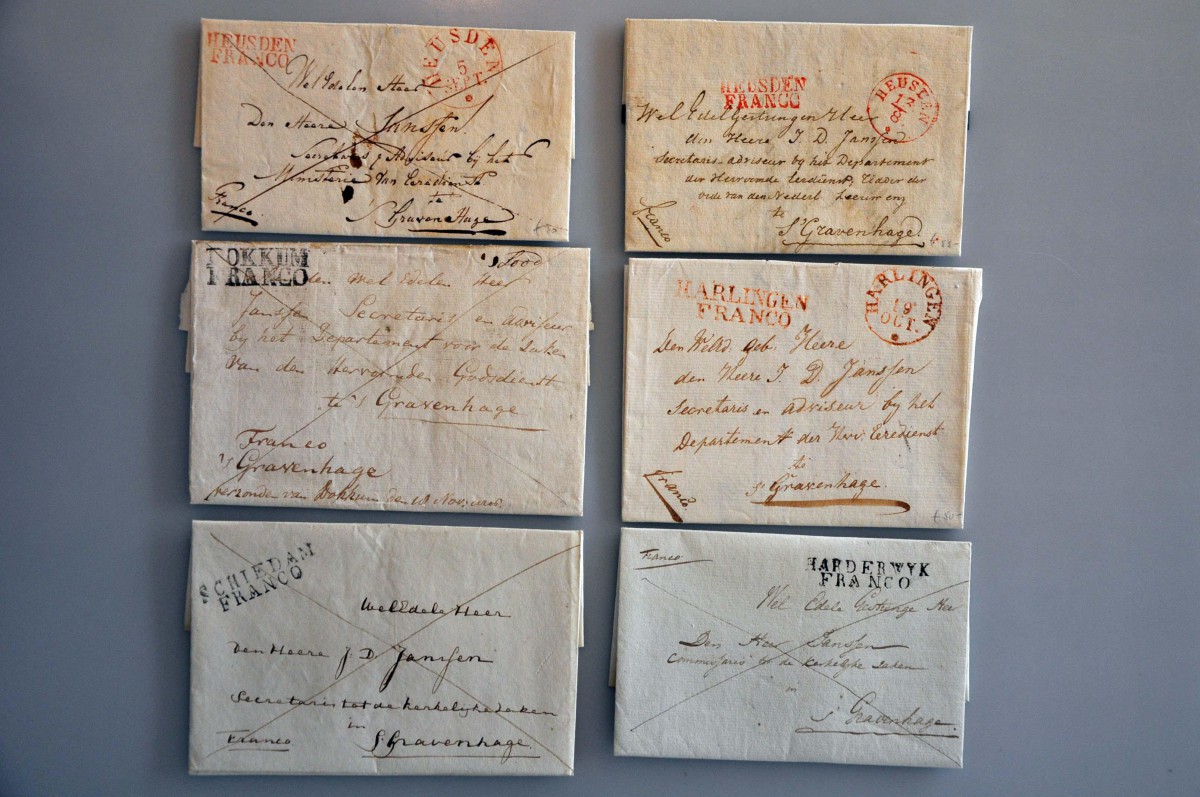 HEUSDEN
FRANCO
HEUSDEN
5
SEPT.
WelEdelen Heer
Den Heere Janssen
Secretaris & Adviseur bij het
Ministerie van Eeredienst
te
's Graven Hage
Franco
HEUSDEN
FRANCO
HEUSDEN
12
8
Wel Edel Gestrengen Heer
den Heere I. D. Janssen
Secretaris-adviseur bij het Departement
der Hervormde Eeredienst, Ridder der
orde van den Nederl. Leeuw enz
te
S'Gravenhage
Franco
DOKKUM
FRANCO
den Wel Edelen Heer
Janssen Secretaris en adviseur
bij het Departement voor de zaken
van den Hervormden Godsdienst
te 's Gravenhage
Franco
's Gravenhage
verzonden van Dokkum den 18 Nov:
HARLINGEN
FRANCO
HARLINGEN
19
OCT.
Den WelEd. geb. Heere
den Heere I. D. Janssen
Secretaris en adviseur bij het
Departement der Herv. Eeredienst
te
s' Gravenhage.
Franco
SCHIEDAM
FRANCO
WelEdele Heer
den Heere J. D. Janssen
Secretaris tot de kerkelijke zaken
in
S. Gravenhage.
Franco
Franco
HARDERWYK
FRANCO
Wel Edele Gestrenge Heer
Den Heer Janssen
Commissaris tot de kerkelijke zaken
in
s Gravenhage